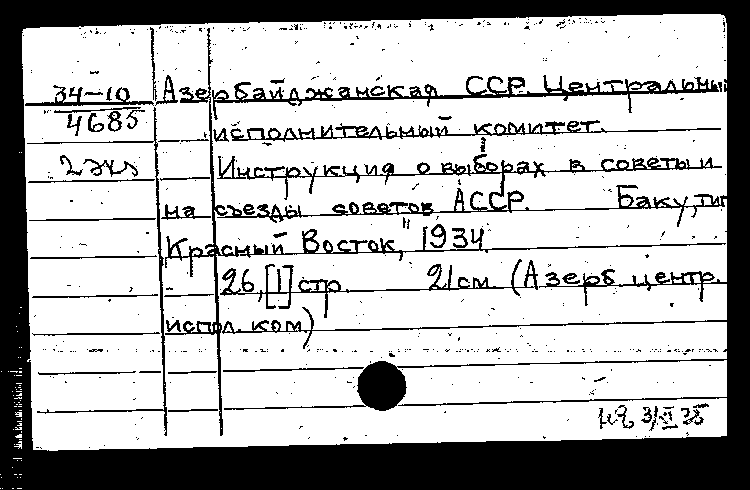 34–10 Азербайджанская ССР. Центральный
4685 исполнительный комитет.
2 экз Инструкция о выборах в советы и
на съезды советов АССР. Баку, тип
Красный Восток," 1934.
26, [1] стр. 21 см. (Азерб центр.
испол. ком.)